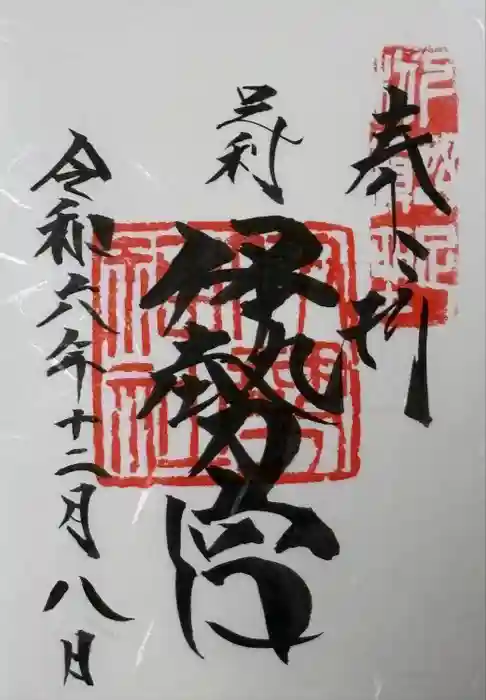 奉拝
足利
伊勢宮
令和六年十二月八日